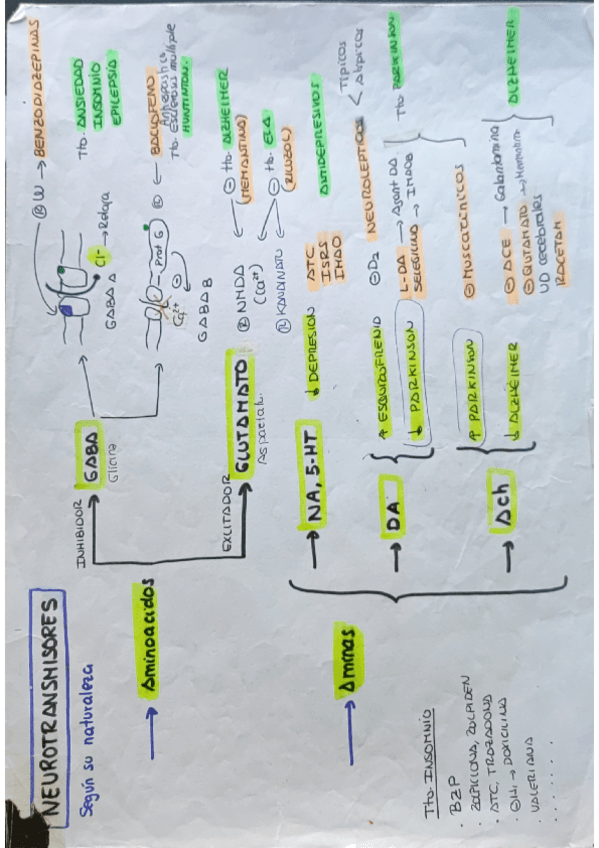 NEUROTRANSMISORES
Según su naturaleza
→ Aminoacidos
INHIBIDOR
GABA
Glicina
GABA A
Cl- → Relaja
Ⓡ W → BENZODIAZEPINAS
Tto. ANSIEDAD
INSOMNIO
EPILEPSIA
GABA B
Ca2+
Prot G
Ⓡ
BACLOFENO
Antiespástico
Tto. Esclerosis multiple
HUNTINTON.
EXCITADOR
GLUTAMATO
Aspartato.
Ⓡ NMDA
(Ca2+)
Ⓡ KAINDINATO
⊖ tto. ALZHEIMER
(MEMANTINA)
⊖ tto. ELA
(RILUZOL)
→ Aminas
→ NA, 5-HT
↓ DEPRESION
ATC
ISRS
IMAO
ANTIDEPRESIVOS
→ DA
↑ ESQUIZOFRENIA
⊖ D2 NEUROLEPTICOS
Típicos
Atípicos
↓ PARKINSON
L-DA → Agont DA
SELEGILINA → IMAOB
Tto PARKINSON
→ Ach
↑ PARKINSON
⊖ MUSCARINICOS
↓ ALZHEIMER
⊖ ACE → Galantamina
⊖ GLUTAMATO → Memantina
VD cerebrales
PIRACETAM
ALZHEIMER
Tto. INSOMNIO
· BZP
· ZOPICLONA, ZOLPIDEN
· ATC, TRAZADONA
· ⊖H1 → DOXICILINA
· VALERIANA